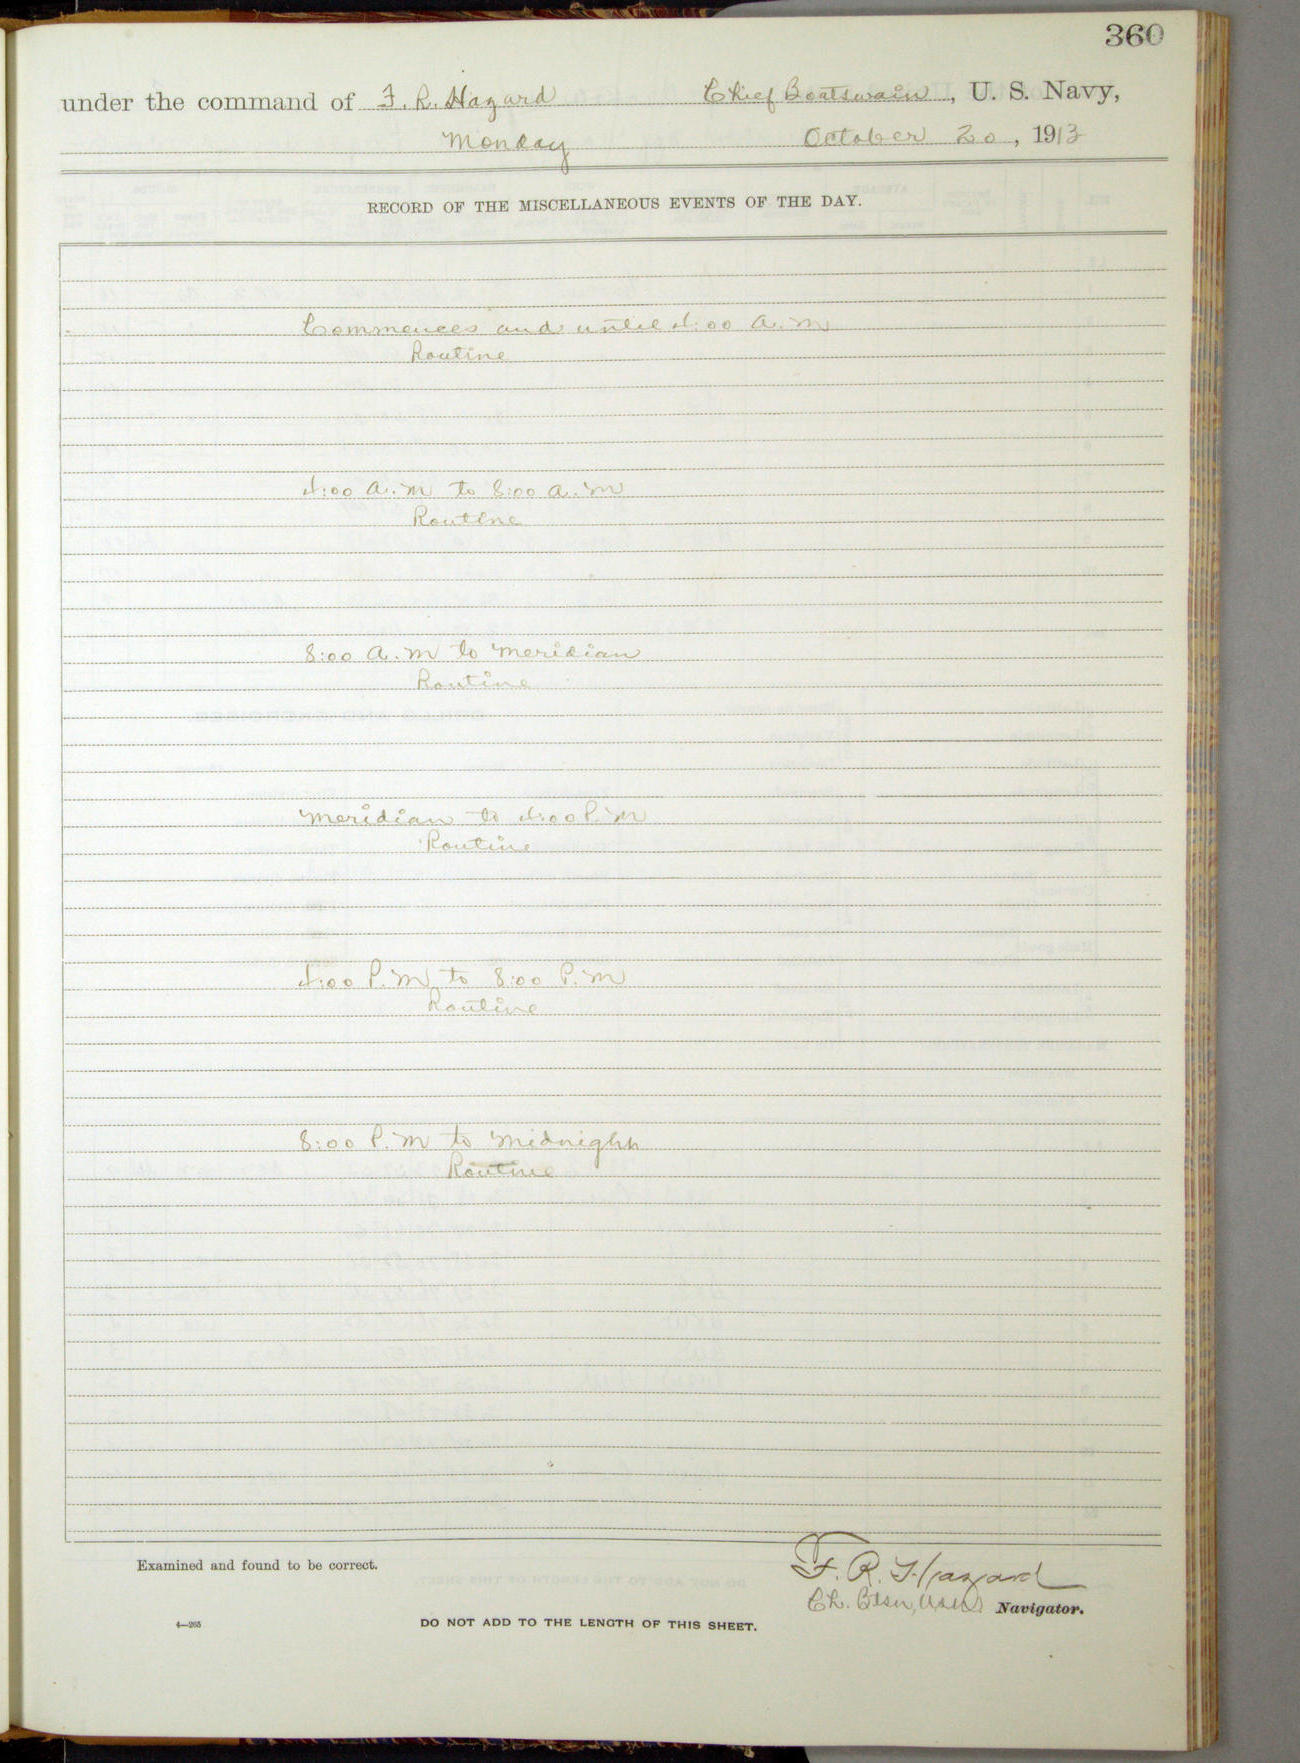 360
under the command of F. R. Hazard Chief Boatswain, U. S. Navy,
Monday October 20, 1913
RECORD OF THE MISCELLANEOUS EVENTS OF THE DAY.
Commences and until 4:00 A.M
Routine
4:00 A.M to 8:00 A.M
Routine
8:00 A.M to Meridian
Routine
Meridian to 4:00 P.M
Routine
4:00 P.M to 8:00 P.M
Routine
8:00 P.M to Midnight
Routine
Examined and found to be correct.
F. R. Hazard
Ch. Btsn, U.S.N. Navigator.
4—265
DO NOT ADD TO THE LENGTH OF THIS SHEET.